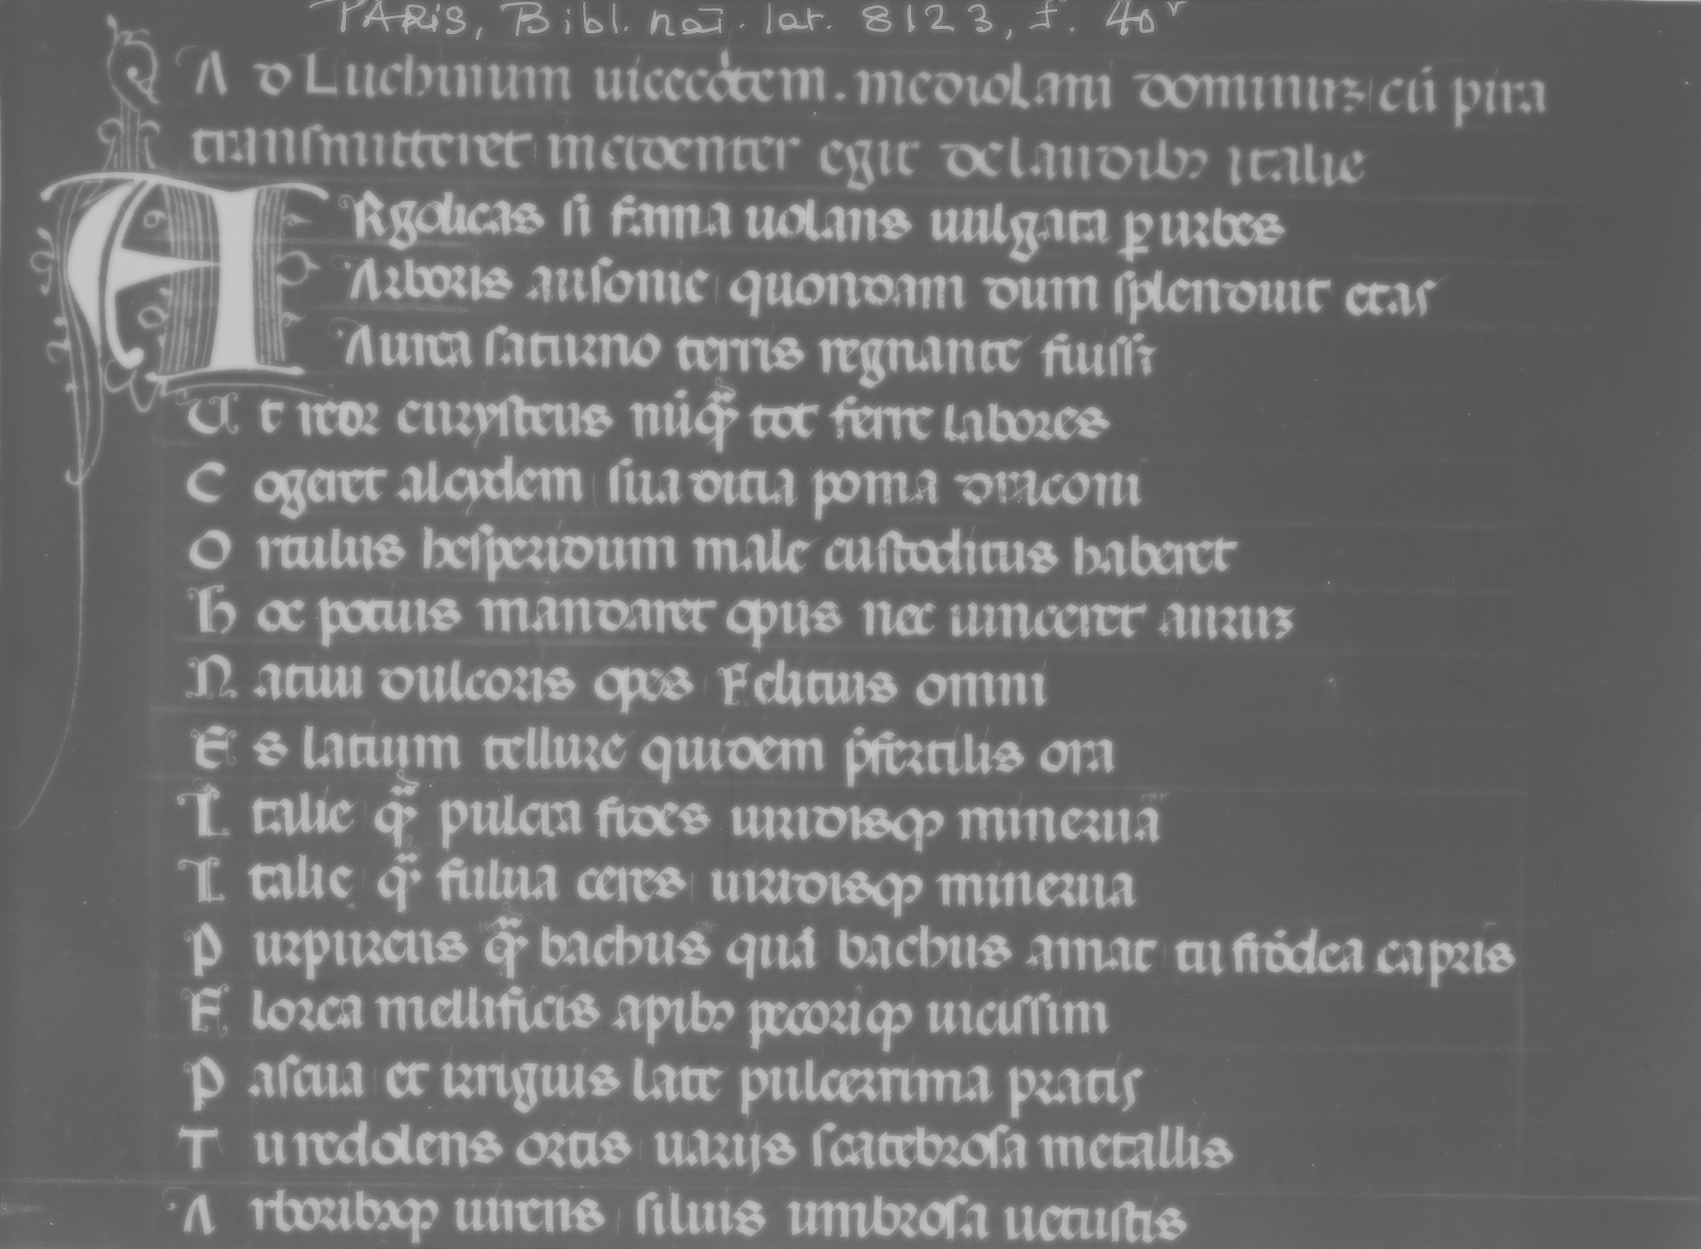 PARIS, Bibl. nat̄. lat. 8123, f. 40v
Ad Luchinum uicecōitem. mediolani dominuꝫ cū pira
transmitteret incidenter egit de laudibꝫ italie
ARgolicas si fama uolans uulgata ꝑ urbes
Arboris ausonie quondam dum splenduit etas
Aurea saturno terris regnante fuissꝫ
Ut reor eurysteus nūqᷓ tot ferre labores
Cogeret alcydem sua dicia poma draconi
Ortulus hesperidum male custoditus haberet
Hoc potius mandaret opus nec uinceret auruꝫ
Natiui dulcoris opes Felicius omni
Es latium tellure quidem p̄fertilis ora
Italie qᷓ pulcra fides uiridisqꝫ mineruā
Italie qᷓ fulua ceres uiridisqꝫ minerua
Purpureus qᷓ bachus quā bachus amat tu frōdea capris
Florea mellificis apibꝫ pecoriqꝫ uicissim
Pascua et irriguis late pulcerrima pratis
Tu redolens ortis uarijs scatebrosa metallis
Arboribꝫqꝫ uirens siluis umbrosa uetustis